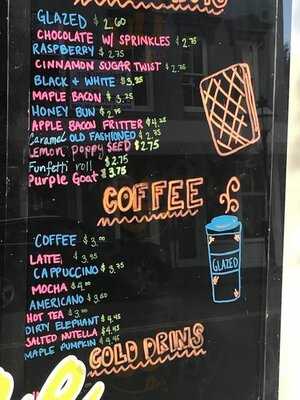 GLAZED $2.60
CHOCOLATE W/ SPRINKLES $2.75
RASPBERRY $2.75
CINNAMON SUGAR TWIST $2.75
BLACK + WHITE $3.25
MAPLE BACON $3.25
HONEY BUN $2.75
APPLE BACON FRITTER $4.25
Caramel OLD FASHIONED $2.75
Lemon poppy SEED $2.75
Funfetti roll $2.75
Purple Goat $3.75
COFFEE
GLAZED
COFFEE $3.00
LATTE $3.95
CAPPUCCINO $3.75
MOCHA $4.00
AMERICANO $3.60
HOT TEA $3.00
DIRTY ELEPHANT $4.45
SALTED NUTELLA $4.45
MAPLE PUMPKIN $4.45
COLD DRINS